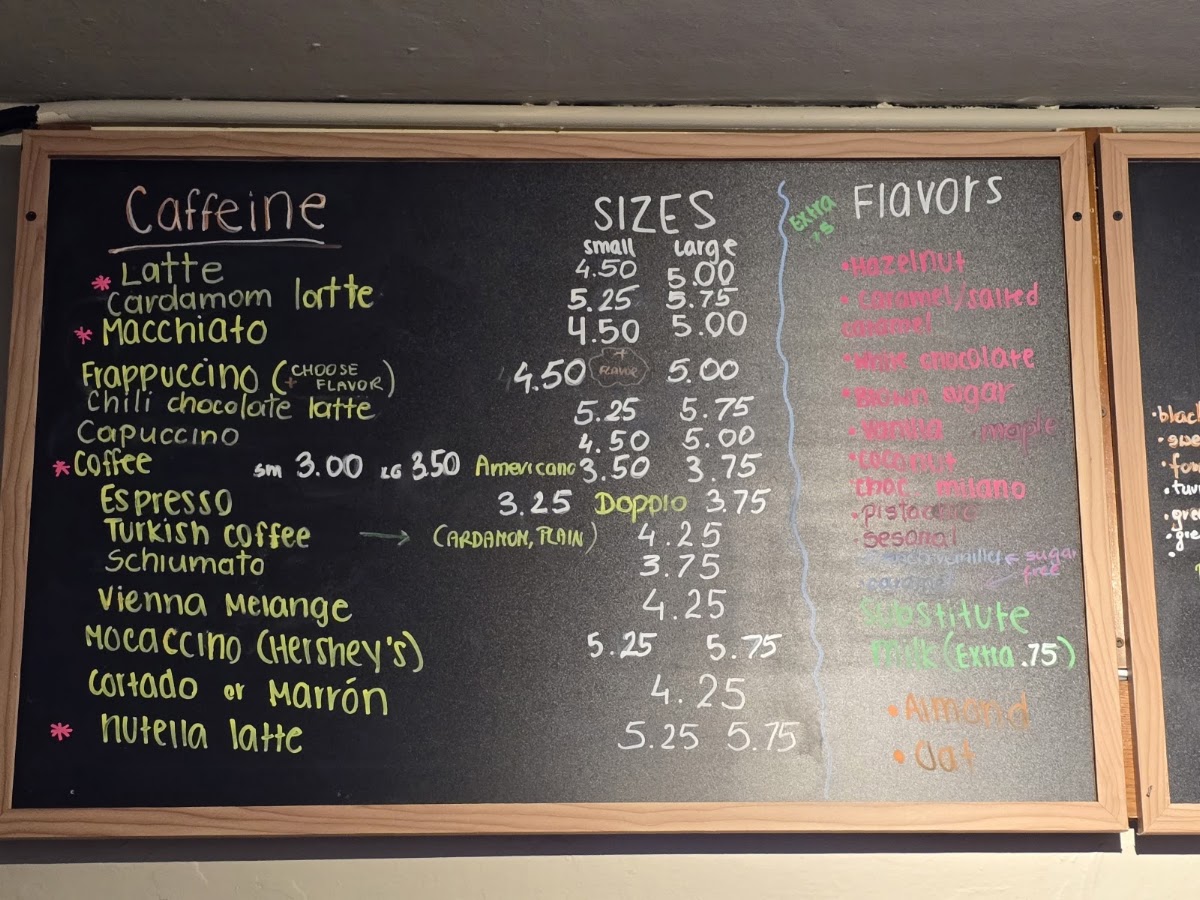 Caffeine
SIZES
small Large
* Latte 4.50 5.00
Cardamom latte 5.25 5.75
* Macchiato 4.50 5.00
Frappuccino (+ CHOOSE FLAVOR) 4.50 + FLAVOR 5.00
Chili chocolate latte 5.25 5.75
Capuccino 4.50 5.00
* Coffee sm 3.00 LG 3.50 Americano 3.50 3.75
Espresso 3.25 Doppio 3.75
Turkish coffee → (CARDAMON, PLAIN) 4.25
Schiumato 3.75
Vienna Melange 4.25
Mocaccino (Hershey's) 5.25 5.75
Cortado or Marrón 4.25
* Nutella latte 5.25 5.75
Extra
Flavors
•Hazelnut
• caramel/salted
caramel
•White chocolate
•Brown sugar
•vanilla maple
•coconut
choc. milano
•pistachio
•sesonal
← sugar
free
caramel
Substitute
Milk (Extra .75)
•Almond
•Oat
•black